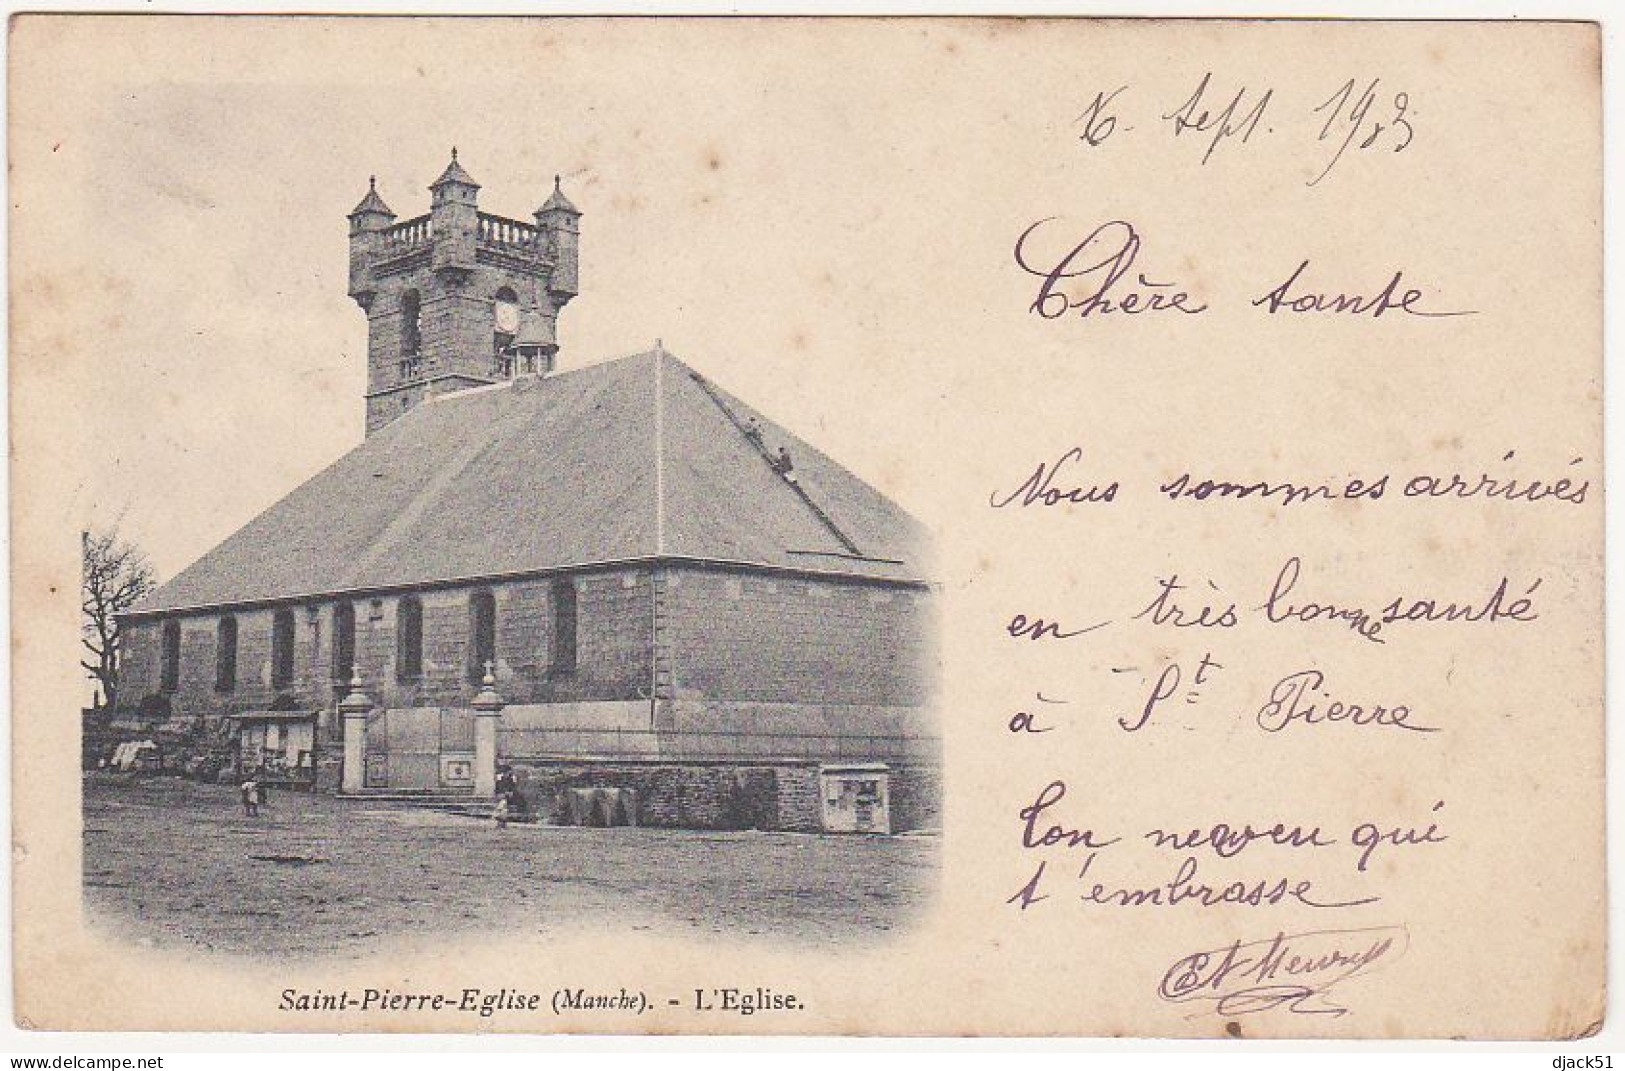 Sept. 1903
Chère tante
Nous sommes arrivés
en très bonne santé
à St Pierre
Ton neveu qui
t'embrasse
Saint-Pierre-Eglise (Manche). - L'Eglise.
djack51